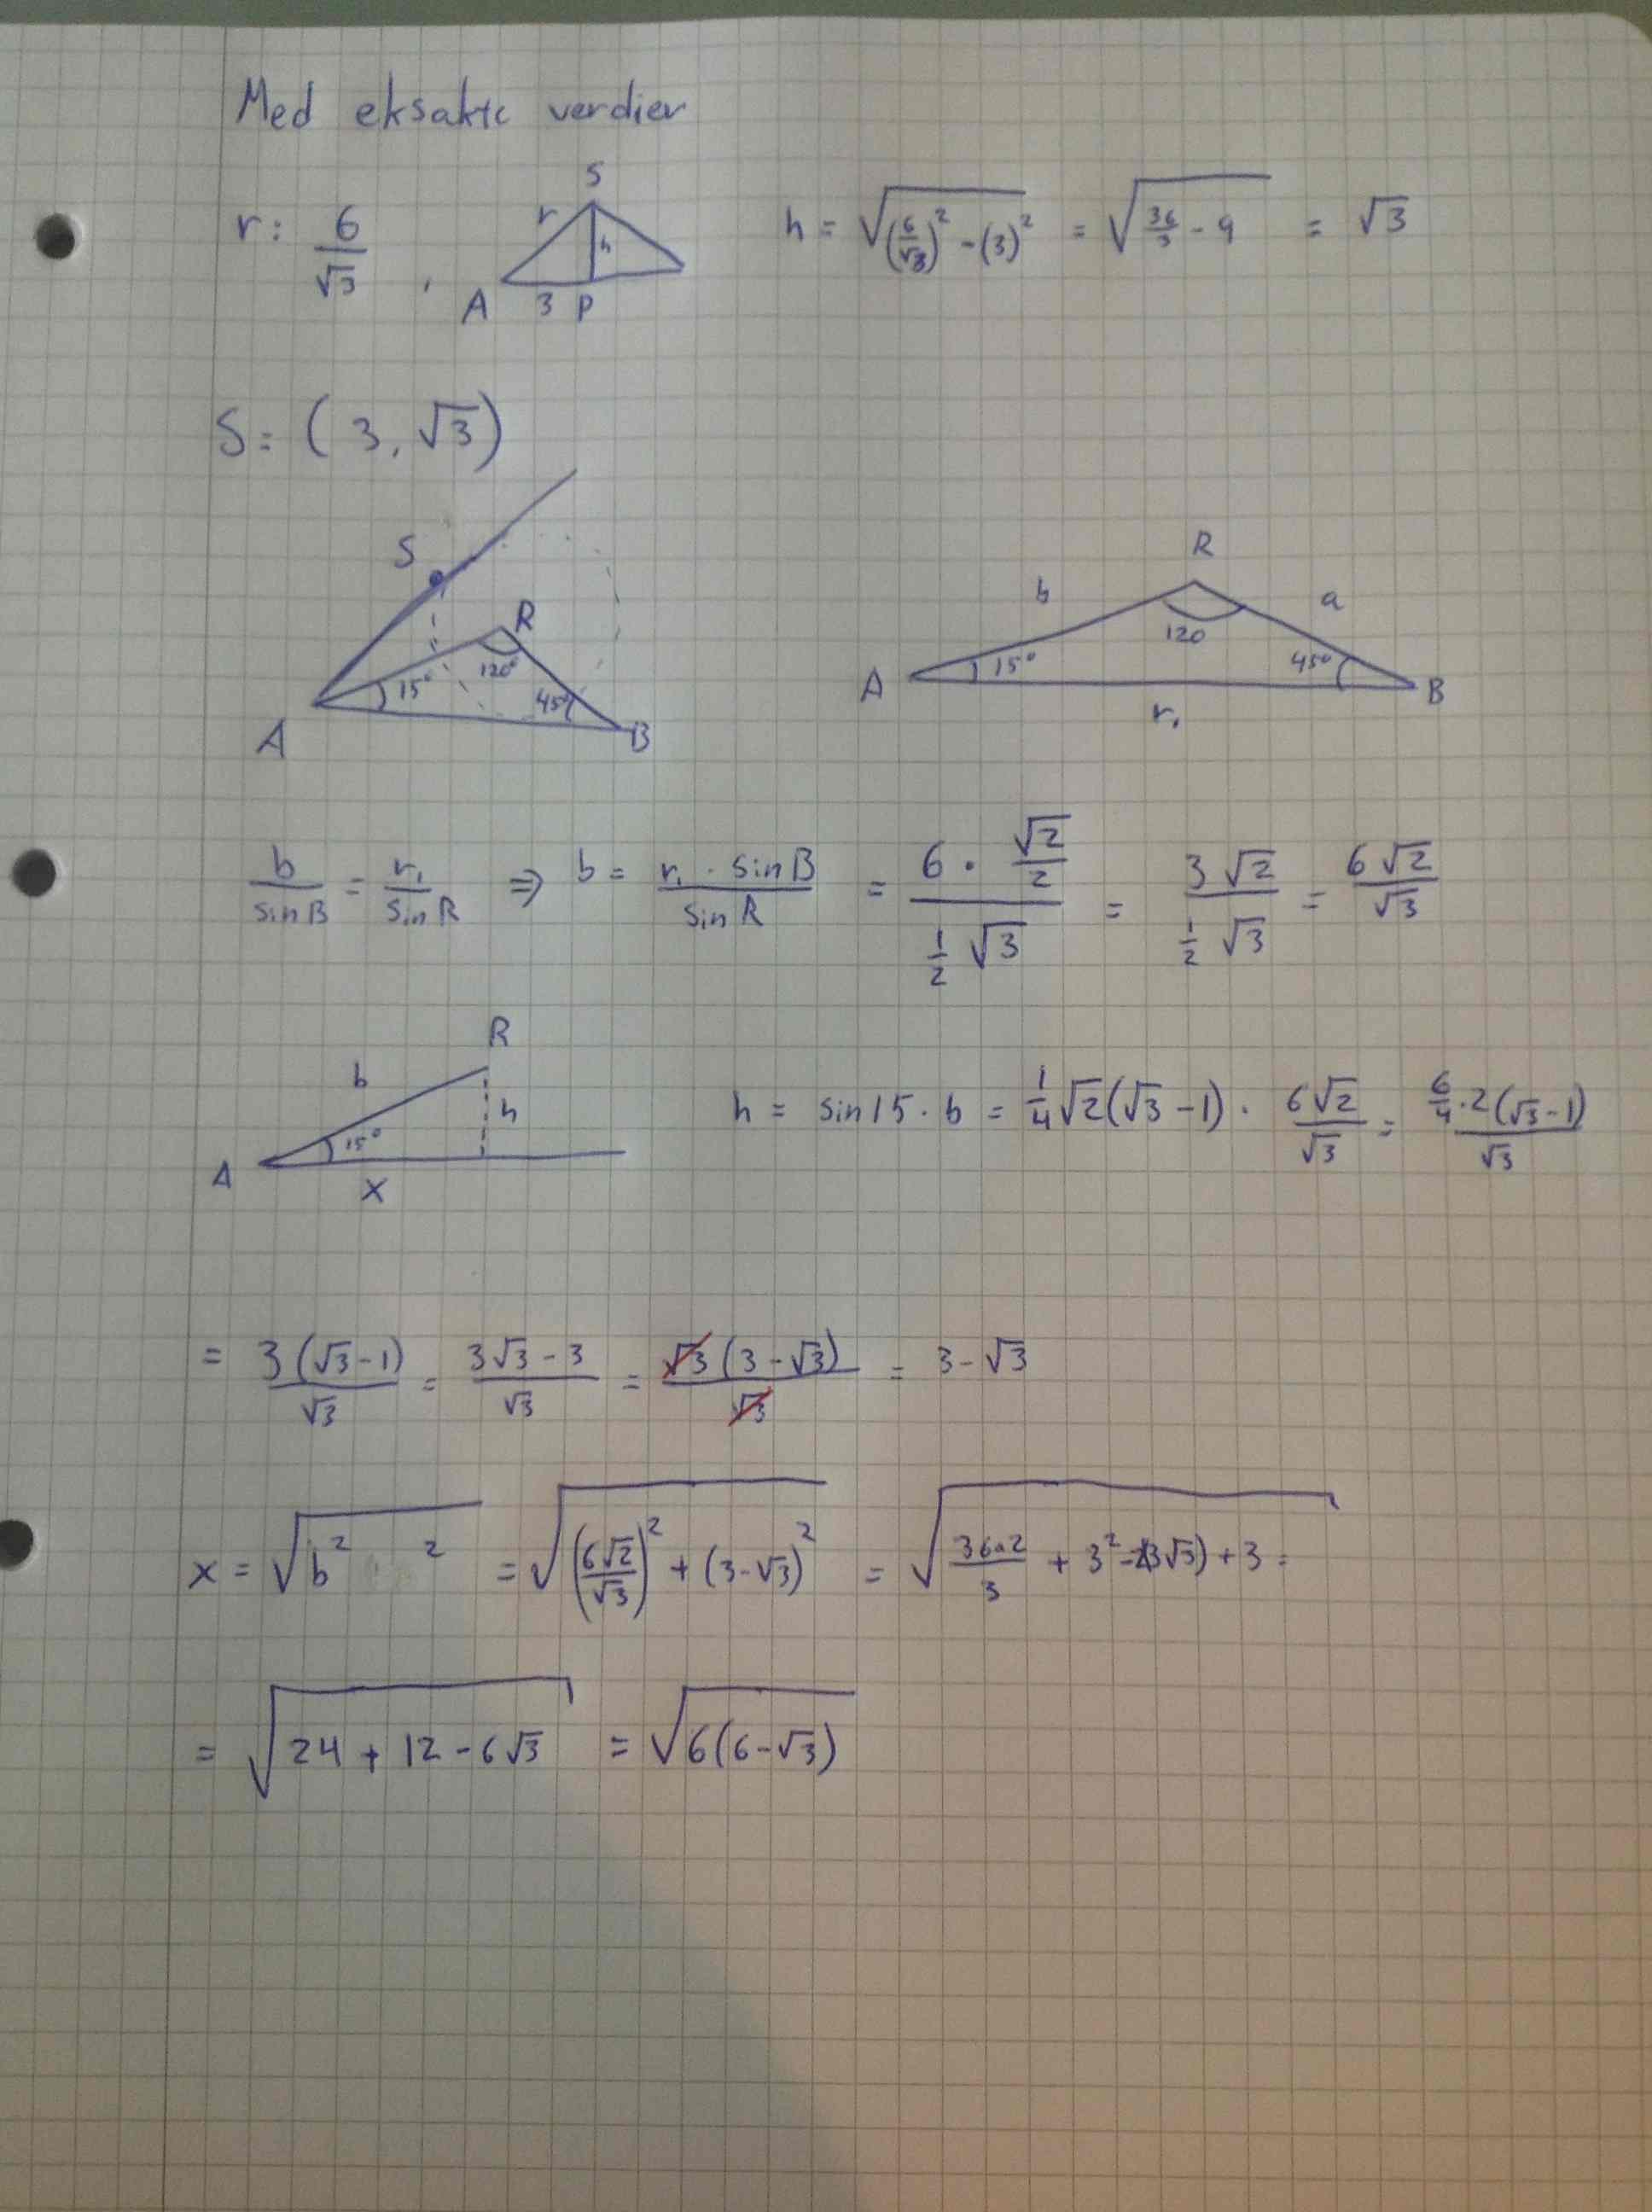 Med eksakte verdier
r: 6/√3 , S r h A 3 P h = √((6/√3)² - (3)²) = √(36/3 - 9) = √3
S = (3, √3)
S R 120° 15° 45° A B
R b a 120 15° 45° A B r₁
b/sin B = r₁/sin R ⇒ b = r₁ · sin B/sin R = (6 · √2/2)/(1/2 √3) = 3√2/(1/2 √3) = 6√2/√3
R b h 15° A x
h = sin 15 · b = 1/4 √2(√3 - 1) · 6√2/√3 = (6/4 · 2(√3 - 1))/√3
= 3(√3 - 1)/√3 = (3√3 - 3)/√3 = √3(3 - √3)/√3 = 3 - √3
x = √(b² ²) = √((6√2/√3)² + (3 - √3)²) = √(36·2/3 + 3² - 2(3√3) + 3 =
= √(24 + 12 - 6√3) = √(6(6 - √3))